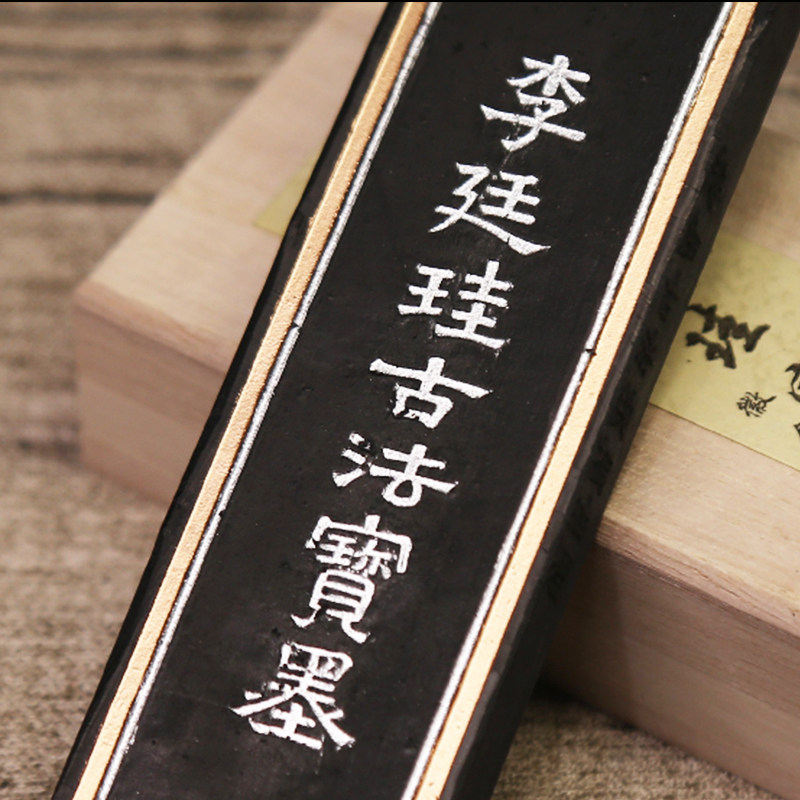 李廷珪古法寶墨
徽